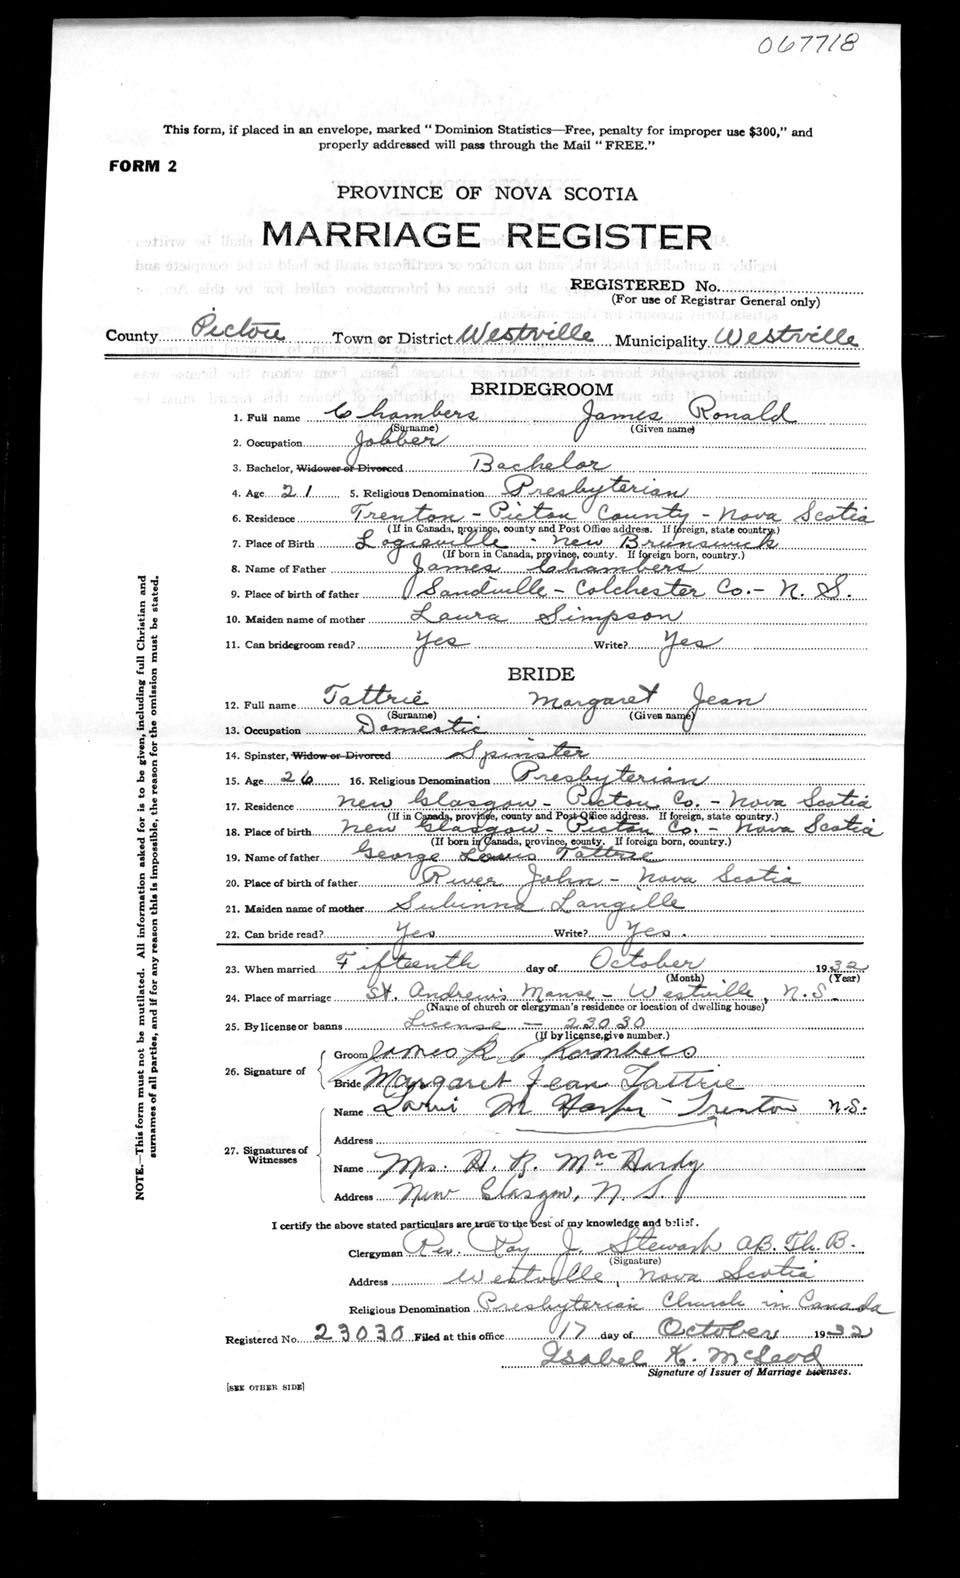 067718
This form, if placed in an envelope, marked "Dominion Statistics—Free, penalty for improper use $300," and
properly addressed will pass through the Mail "FREE."
FORM 2
PROVINCE OF NOVA SCOTIA
MARRIAGE REGISTER
REGISTERED No.
(For use of Registrar General only)
County Pictou Town or District Westville Municipality Westville
BRIDEGROOM
1. Full name Chambers James Ronald
(Surname) (Given name)
2. Occupation Jobber
3. Bachelor, Widower or Divorced Bachelor
4. Age 21 5. Religious Denomination Presbyterian
6. Residence Trenton - Pictou County - Nova Scotia
(If in Canada, province, county and Post Office address. If foreign, state country.)
7. Place of Birth Logieville - New Brunswick
(If born in Canada, province, county. If foreign born, country.)
8. Name of Father James Chambers
9. Place of birth of father Sandville - Colchester Co. - N. S.
10. Maiden name of mother Laura Simpson
11. Can bridegroom read? Yes Write? Yes
BRIDE
12. Full name Tattrie Margaret Jean
(Surname) (Given name)
13. Occupation Domestic
14. Spinster, Widow or Divorced Spinster
15. Age 26 16. Religious Denomination Presbyterian
17. Residence New Glasgow - Pictou Co. - Nova Scotia
(If in Canada, province, county and Post Office address. If foreign, state country.)
18. Place of birth New Glasgow - Pictou Co. - Nova Scotia
(If born in Canada, province, county. If foreign born, country.)
19. Name of father George Louis Tattrie
20. Place of birth of father River John - Nova Scotia
21. Maiden name of mother Subinna Langille
22. Can bride read? Yes Write? Yes.
23. When married Fifteenth day of October 1932
(Month) (Year)
24. Place of marriage St. Andrew's Manse - Westville, N.S.
(Name of church or clergyman's residence or location of dwelling house)
25. By license or banns License - 23030
(If by license, give number.)
26. Signature of
Groom James R Chambers
Bride Margaret Jean Tattrie
27. Signatures of Witnesses
Name M Harper - Trenton N.S.
Address
Name Mrs. H. R. MacHardy
Address New Glasgow, N. S.
I certify the above stated particulars are true to the best of my knowledge and belief.
Clergyman Rev. Roy J. Stewart AB. Th. B.
(Signature)
Address Westville, Nova Scotia
Religious Denomination Presbyterian Church in Canada
Registered No. 23030 Filed at this office 17 day of October 1932
Isabel K. McLeod
Signature of Issuer of Marriage Licenses.
[SEE OTHER SIDE]
NOTE.—This form must not be mutilated. All information asked for is to be given, including full Christian and
surnames of all parties, and if for any reason this is impossible, the reason for the omission must be stated.